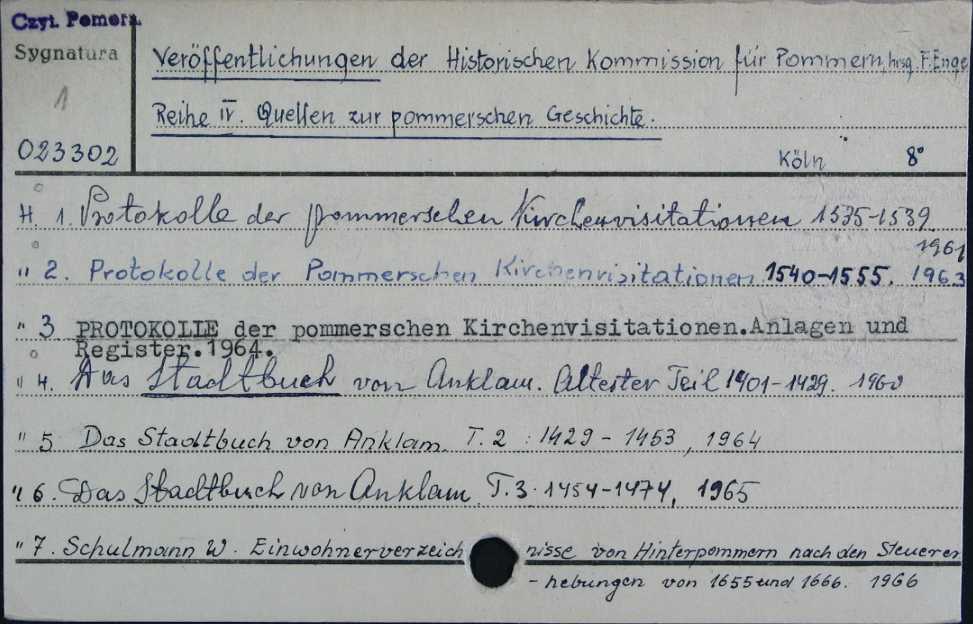 Czyt. Pomorz.
Sygnatura
1
023302
Veröffentlichungen der Historischen Kommission für Pommern, hrsg. F. Enge
Reihe IV. Quellen zur pommerschen Geschichte.
Köln 8°
H. 1. Protokolle der pommerschen Kirchenvisitationen 1535-1539
1961
" 2. Protokolle der Pommerschen Kirchenvisitationen 1540-1555. 1963
" 3 PROTOKOLLE der pommerschen Kirchenvisitationen.Anlagen und
Register.1964.
" 4. Das Stadtbuch von Anklam. Ältester Teil 1401-1429. 1960
" 5 Das Stadtbuch von Anklam. T. 2 : 1429 - 1453, 1964
" 6. Das Stadtbuch von Anklam T. 3. 1454-1474, 1965
" 7. Schulmann W. Einwohnerverzeichnisse von Hinterpommern nach den Steuerer
- hebungen von 1655 und 1666. 1966